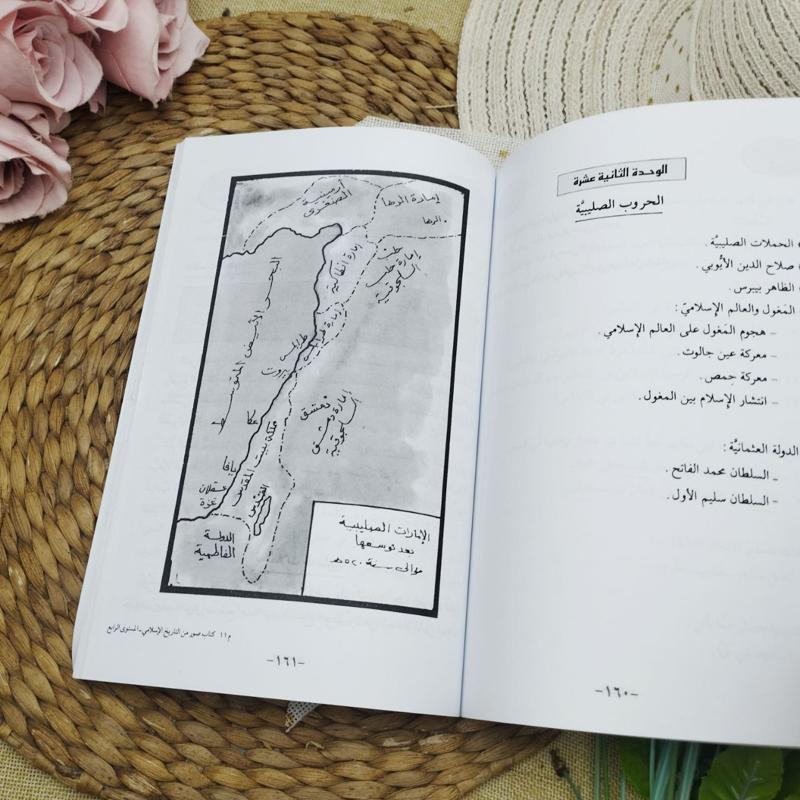 الوحدة الثانية عشرة
الحروب الصليبيَّة
الحملات الصليبيَّة.
صلاح الدين الأيُّوبي.
الظاهر بيبرس.
المَغول والعالم الإِسلاميّ:
- هجوم المَغول على العالم الإِسلامي.
- معركة عين جالوت.
- معركة حِمص.
- انتشار الإِسلام بين المغول.
الدولة العثمانيَّة:
- السلطان محمد الفاتح.
- السلطان سليم الأول.
-١٦٠-
أرمينية
الصغرى
إمارة الرها
الرها
حلب
إمارة حلب
السلجوقية
إمارة انطاكية
البحر الأبيض المتوسط
إمارة طرابلس
طرابلس
بيروت
دمشق
إمارة دمشق
السلجوقية
عكا
مملكة بيت المقدس
يافا
القدس
عسقلان
غزة
الدولة
الفاطمية
الإمارات الصليبية
بعد توسعها
حوالى سنة ٥٢٠هـ
م١١ كتاب صور من التاريخ الإسلامي - المستوى الرابع
-١٦١-